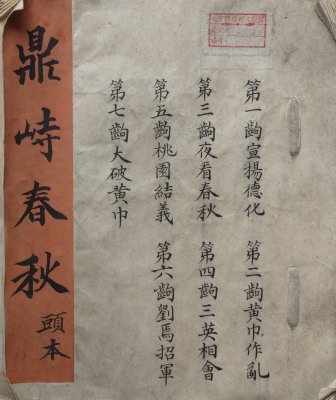 鼎峙春秋
頭本
第一齣宣揚德化 第二齣黃巾作亂
第三齣夜看春秋 第四齣三英相會
第五齣桃園結義 第六齣劉焉招軍
第七齣大破黃巾